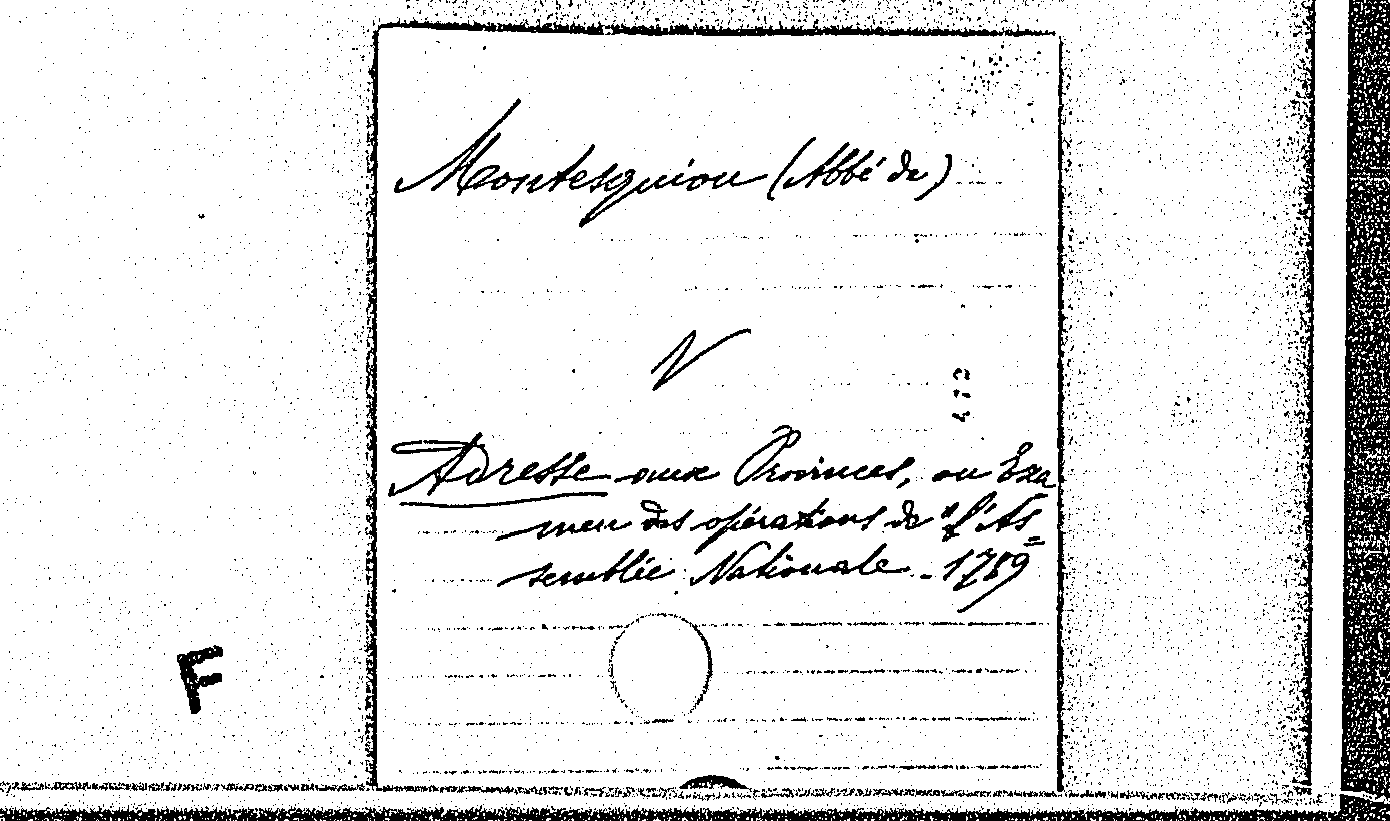 Montesquiou (Abbé de)
N
Adresse aux Provinces, ou Exa
men des opérations de l'As=
semblée Nationale - 1789
F